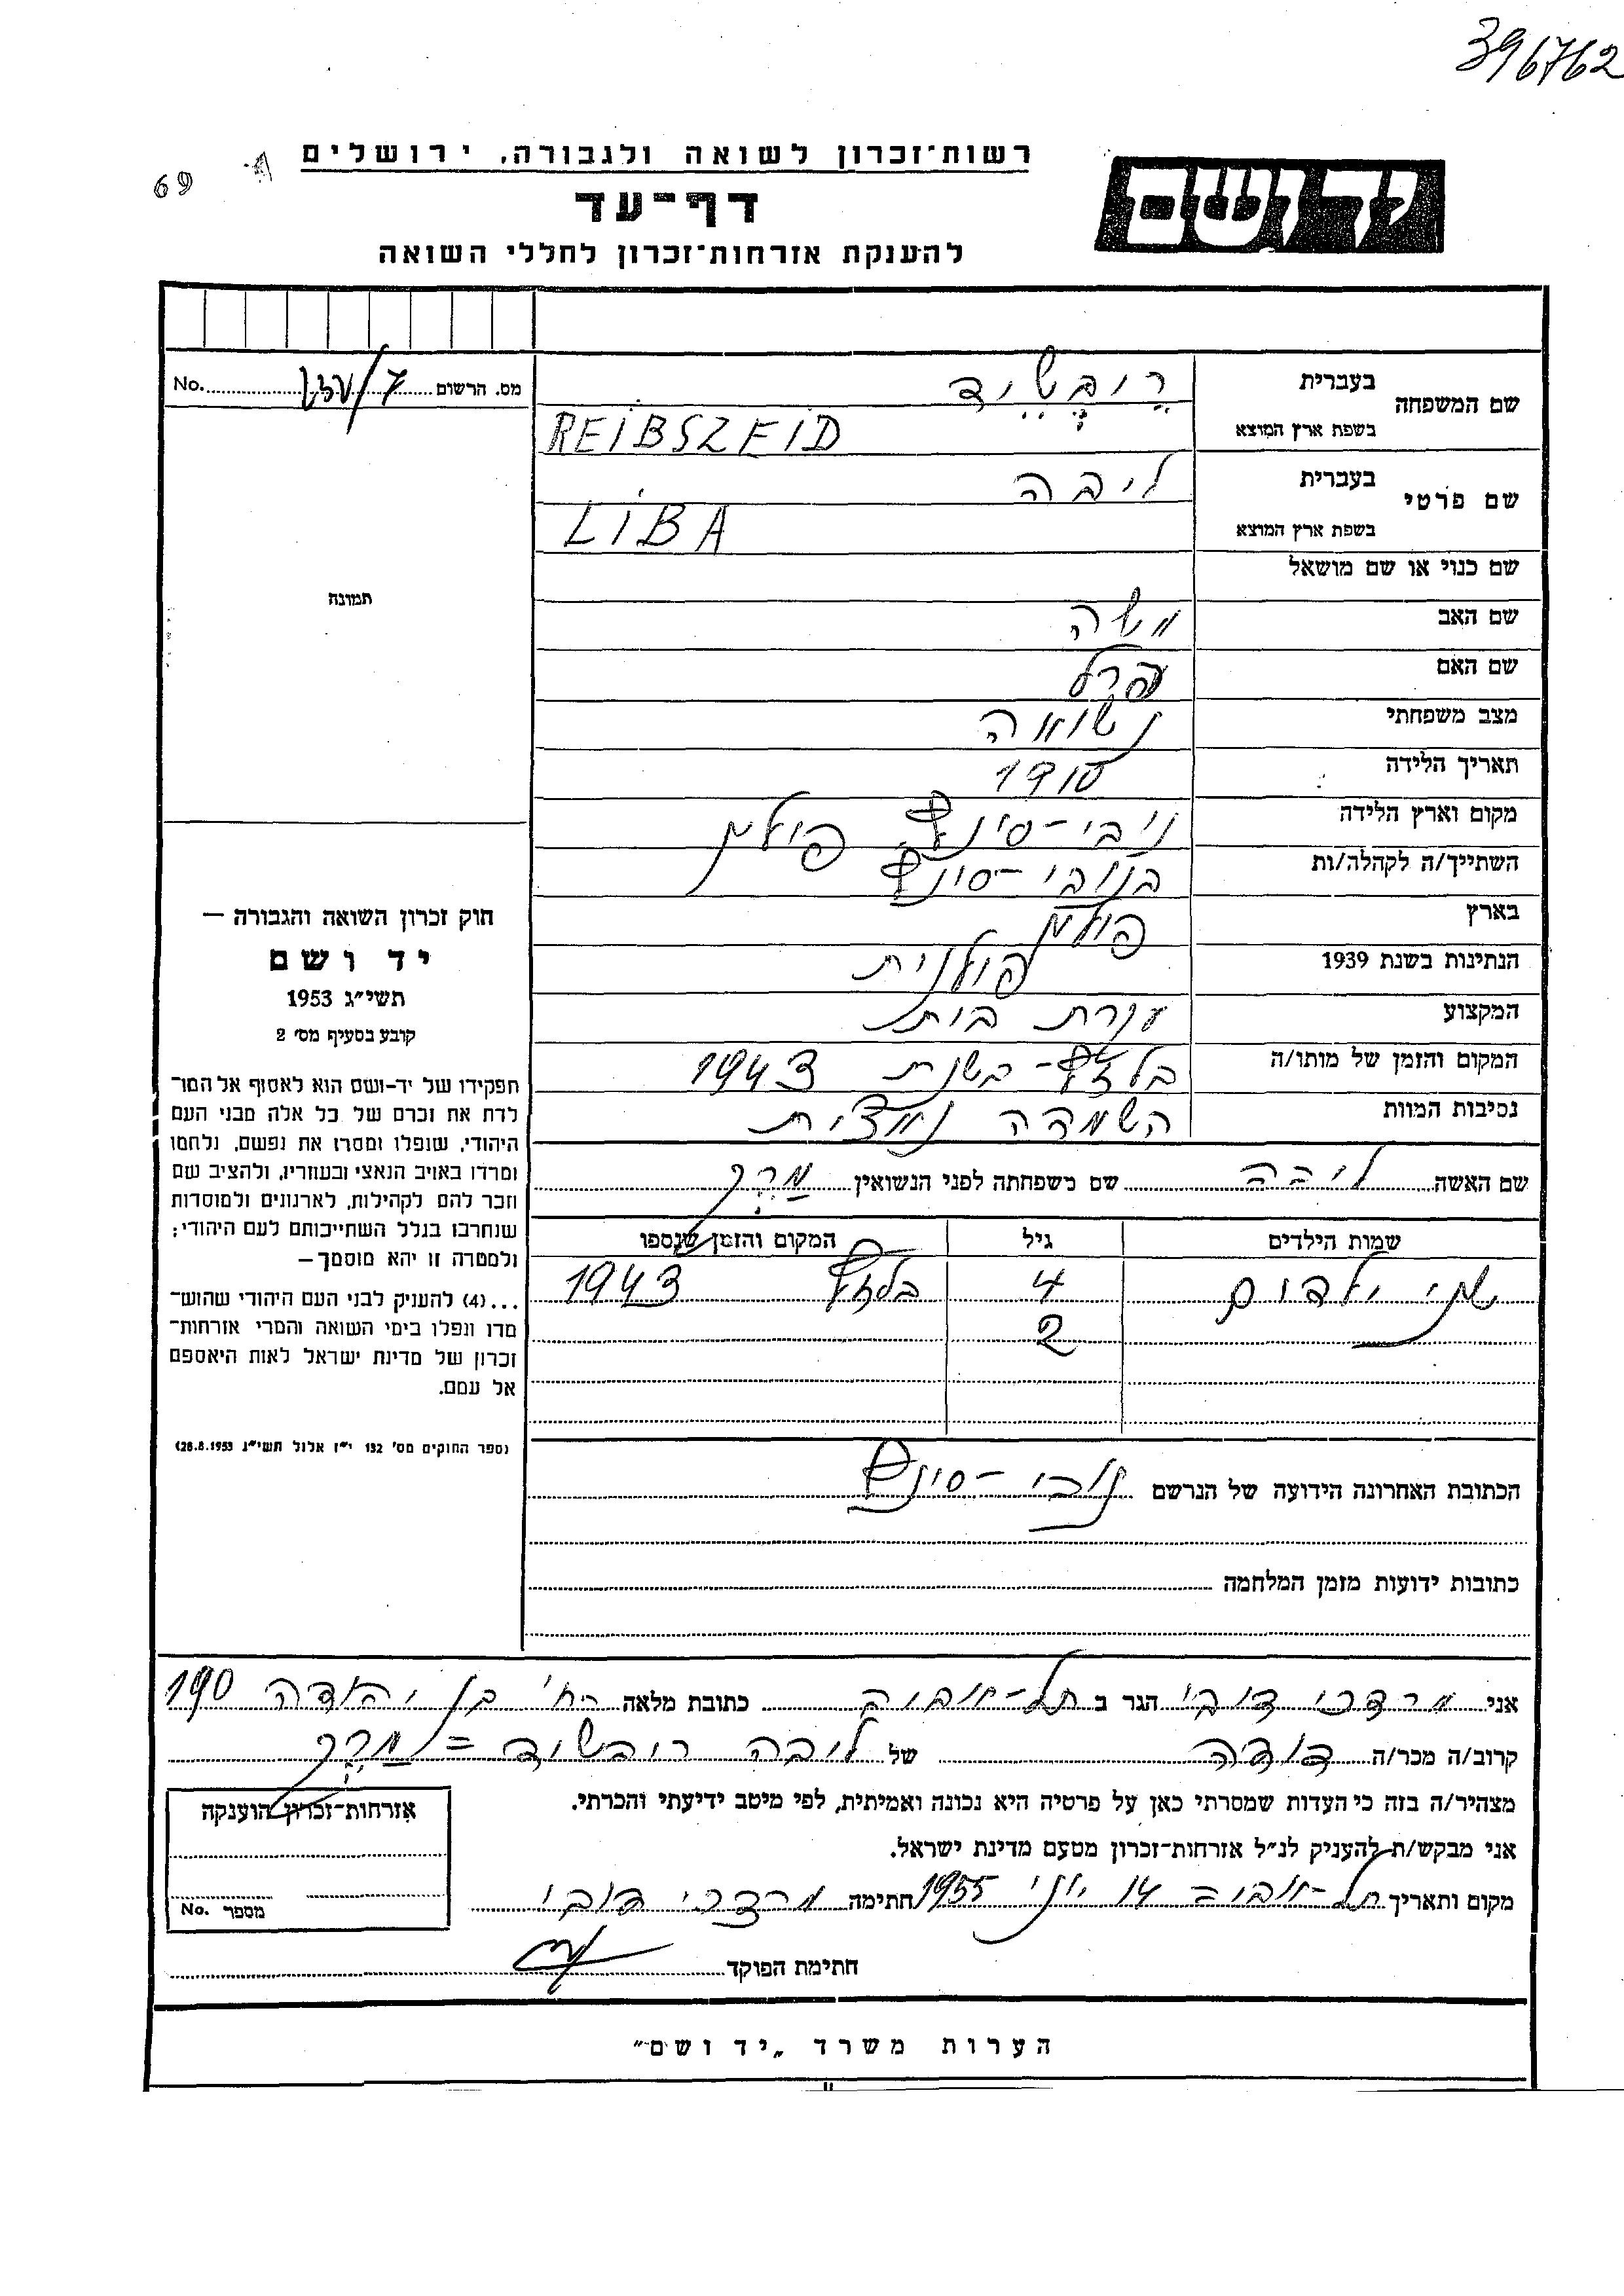 396762
69
רשות־זכרון לשואה ולגבורה, ירושלים
יד ושם
דף־עד
להענקת אזרחות־זכרון לחללי השואה
מס. הרשום No.
שם המשפחה
בעברית
רײַבּשײֵד
בשפת ארץ המוצא
REIBSZEID
שם פרטי
בעברית
ליבה
בשפת ארץ המוצא
LIBA
תמונה
שם כנוי או שם מושאל
שם האב משה
שם האם פרל
מצב משפחתי נשואה
תאריך הלידה
מקום וארץ הלידה נובי-סונץ פולין
השתייך/ה לקהלה/ות בנובי-סונץ
בארץ פולין
הנתינות בשנת 1939 פולנית
המקצוע עקרת בית
המקום והזמן של מותו/ה בלזץ - בשנת 1943
נסיבות המוות השמדה נאצית
שם האשה ליבה שם משפחתה לפני הנשואין
שמות הילדים גיל המקום והזמן שנספו
שני ילדים 4 בלזץ 1943
2
הכתובת האחרונה הידועה של הנרשם נובי-סונץ
כתובות ידועות מזמן המלחמה
חוק זכרון השואה והגבורה —
יד ושם
תשי״ג 1953
קובע בסעיף מס׳ 2
תפקידו של יד-ושם הוא לאסוף אל המו־
לדת את זכרם של כל אלה מבני העם
היהודי, שנפלו ומסרו את נפשם, נלחמו
ומרדו באויב הנאצי ובעוזריו, ולהציב שם
וזכר להם לקהילות, לארגונים ולמוסדות
שנחרבו בגלל השתייכותם לעם היהודי;
ולמטרה זו יהא מוסמך—
...(4) להעניק לבני העם היהודי שהוש־
מדו ונפלו בימי השואה והמרי אזרחות־
זכרון של מדינת ישראל לאות היאספם
אל עמם.
(ספר החוקים מס׳ 132 י״ז אלול תשי״ג 28.8.1953)
אני מרדכי דובי הגר ב תל-אביב כתובת מלאה רח׳ בן יהודה 190
קרוב/ה מכר/ה דודה של ליבה רייבשיד =
מצהיר/ה בזה כי העדות שמסרתי כאן על פרטיה היא נכונה ואמיתית, לפי מיטב ידיעתי והכרתי.
אני מבקש/ת להעניק לנ״ל אזרחות־זכרון מטעם מדינת ישראל.
מקום ותאריך תל-אביב = 14 יוני 1955 חתימה מרדכי דובי
חתימת הפוקד
אזרחות־זכרון הוענקה
מספר No.
הערות משרד „יד ושם״